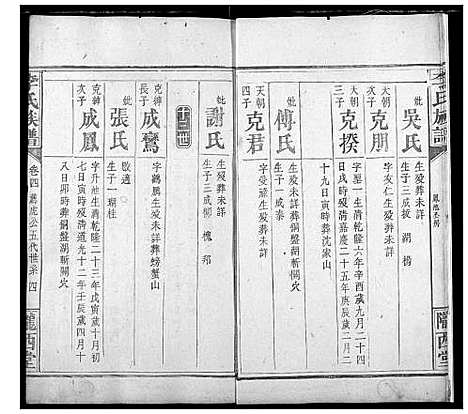 李氏族譜
隴西堂
妣
吳氏
生歿葬未詳
生子三成拔 湖 榜
大朝次子
克朋
生歿葬未詳
大朝三子
克揆
字 生清乾隆六年辛酉歲九月二十四
日寅時歿清嘉慶二十五年庚辰歲二月二
十九日寅時葬沈家山
妣
傅氏
生歿葬銅盤湖未詳
天朝四子
克君
字受璠生歿葬未詳
妣
謝氏
生歿葬未詳
生子三成 槐 邦
克紳長子
成鸞
字鶴鵬生歿未詳葬螃蟹山
妣
張氏
啟適
生子一瑚桂
克紳次子
成鳳
字升 生清乾隆二十三年戊寅歲十月初
八日卯時歿清道光十二年壬辰歲四月十
日 時葬銅盤湖斬關火
李氏族譜
卷四 公五代世系 四
隴西堂